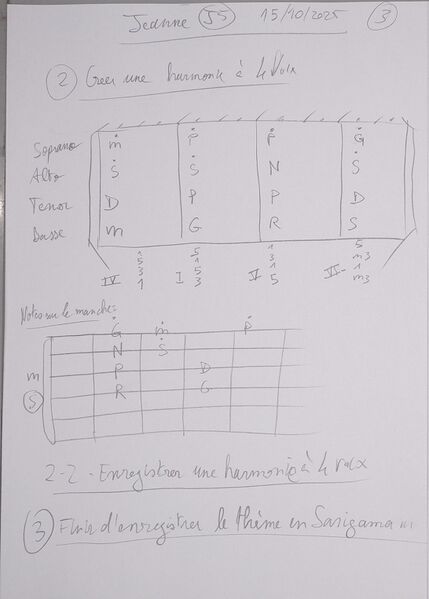 Jeanne J5 15/10/2025 3
2 Créer une harmonie à 4 Voix
Soprano ṁ Ṗ Ṗ Ġ
Alto Ṡ Ṡ N Ṡ
Tenor D P P D
Basse m G R S
1 5 1 5
5 1 3 m3
3 5 1 1
IV 1 I 3 V 5 VI- m3
Notes sur le manche:
Ġ ṁ Ṗ
N Ṡ
m P D
S R G
2-2- Enregistrer une harmonie à 4 voix
3 Finir d'enregistrer le thème en Sarigama